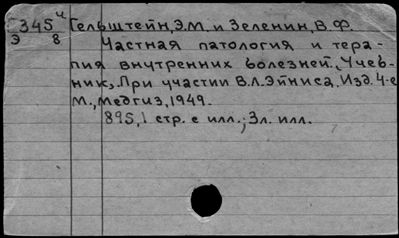 345ч Гельштейн, Э.М. и Зеленин, В.Ф.
Э 8 Частная патология и тера-
пия внутренних болезней. Учеб-
ник. При участии В.Л. Эйниса. Изд. 4-е
М., Медгиз, 1949.
895,1 стр. с илл.; 3л. илл.